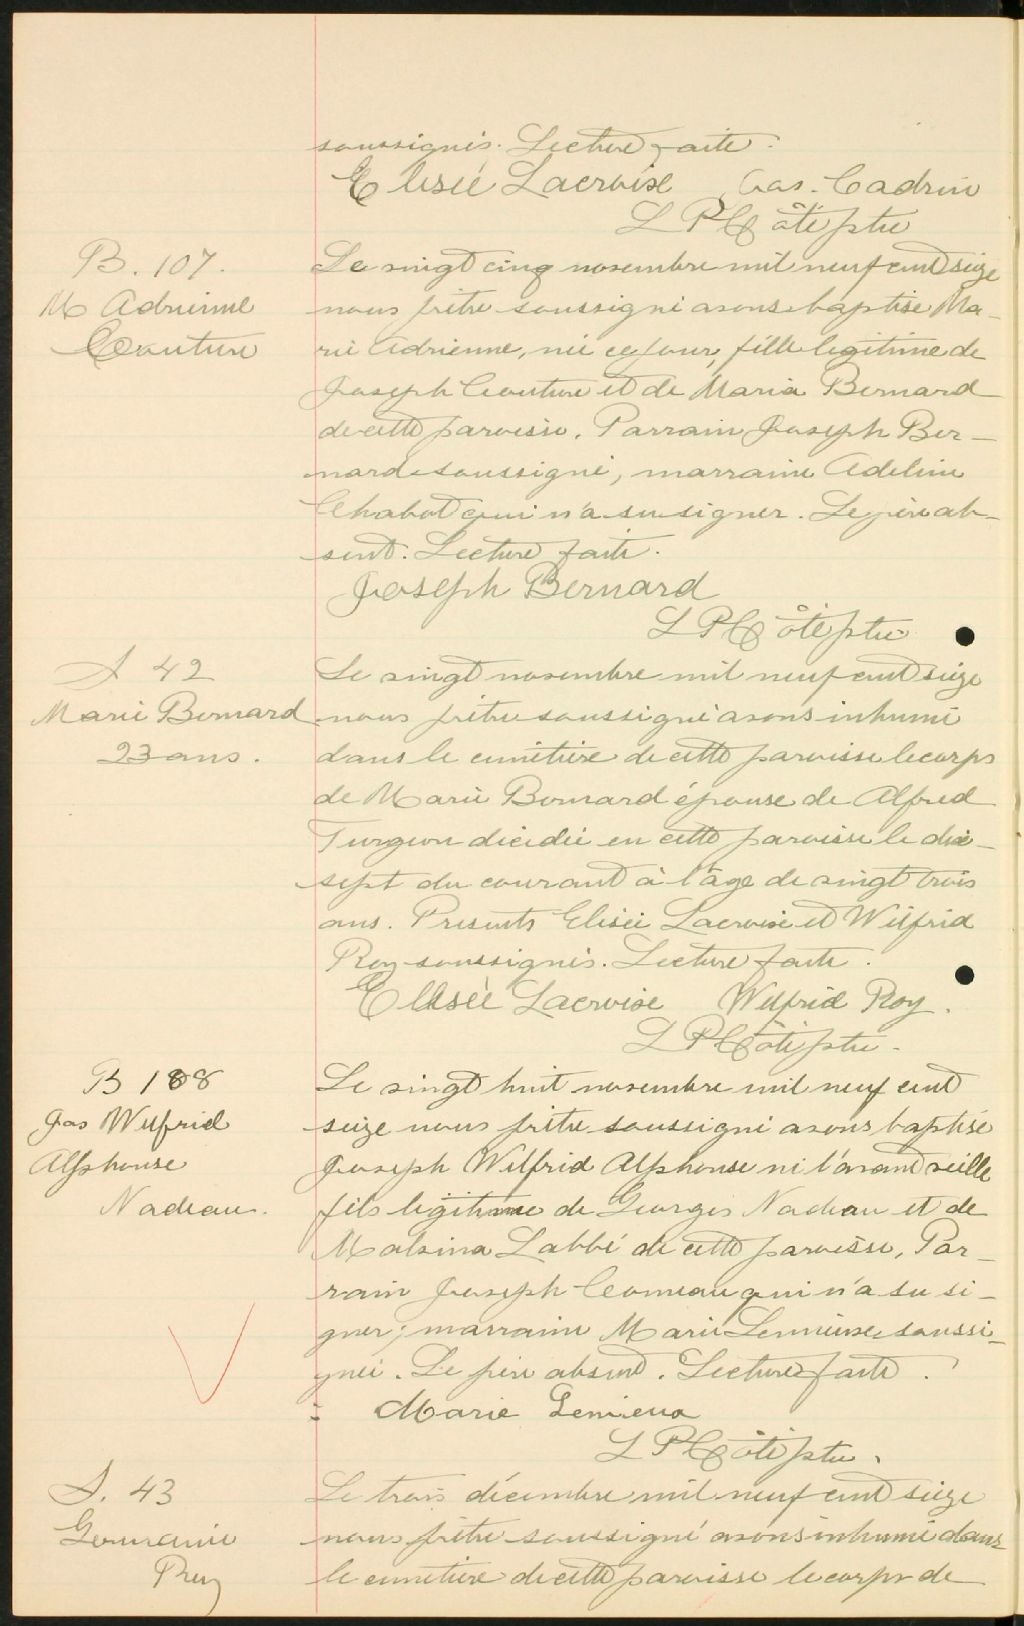 soussignés. Lecture faite.
Elisée Lacroix Jos. Cadrin
L P Côté ptre
B. 107.
M Adrienne
Couture
Le vingt cinq novembre mil neuf cent seize
nous prêtre soussigné avons baptisé Ma-
rie Adrienne, née ce jour, fille légitime de
Joseph Couture et de Maria Bernard
de cette paroisse. Parrain Joseph Ber-
nard soussigné, marraine Adeline
Chabot qui n'a su signer. Le père ab-
sent. Lecture faite.
Joseph Bernard
L P Côté ptre
S 42
Marie Bernard
23 ans.
Le vingt novembre mil neuf cent seize
nous prêtre soussigné avons inhumé
dans le cimetière de cette paroisse le corps
de Marie Bernard épouse de Alfred
Turgeon décédée en cette paroisse le dix-
sept du courant à l'âge de vingt trois
ans. Présents Elisée Lacroix et Wilfrid
Roy soussignés. Lecture faite.
Elisée Lacroix Wilfrid Roy.
L P Côté ptre.
B 108
Jos Wilfrid
Alphonse
Nadeau.
Le vingt huit novembre mil neuf cent
seize nous prêtre soussigné avons baptisé
Joseph Wilfrid Alphonse né l'avant veille
fils légitime de Georges Nadeau et de
Malvina Labbé de cette paroisse, Par-
rain Joseph Comeau qui n'a su si-
gner; marraine Marie Lemieux soussi-
gnée. Le père absent. Lecture faite.
Marie Lemieux
L P Côté ptre.
S. 43
Germanie
Roy
Le trois décembre mil neuf cent seize
nous prêtre soussigné avons inhumé dans
le cimetière de cette paroisse le corps de